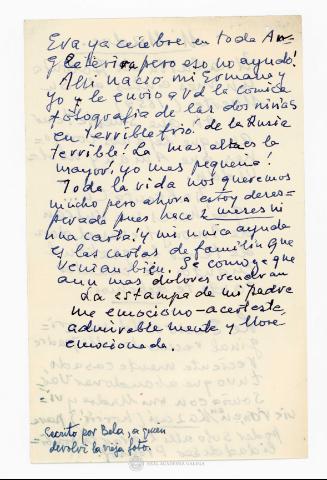 Eva ya celebre en toda An-
gleterra pero eso no ayudó!
Ahi nacio mi Ermana y
yo y le envio a vd la comica
fotografia de las dos niñas
en terrible frió! de la Rusia
terrible! La mas alta es la
mayor, yo mas pequeña!
Toda la vida nos queremos
mucho pero ahora estoy deses=
perada pues hace 2 meses ni
una carta! y mi unica ayuda
es las cartas de familia que
venian bien. Se como ge que
aun mas dolores vendran
La estampa de mi padre
me emociono - acerteste,
admirablemente y llore
emocionada.
Escrito por Bela, a quien
devolví la vieja foto.
REAL ACADEMIA GALEGA